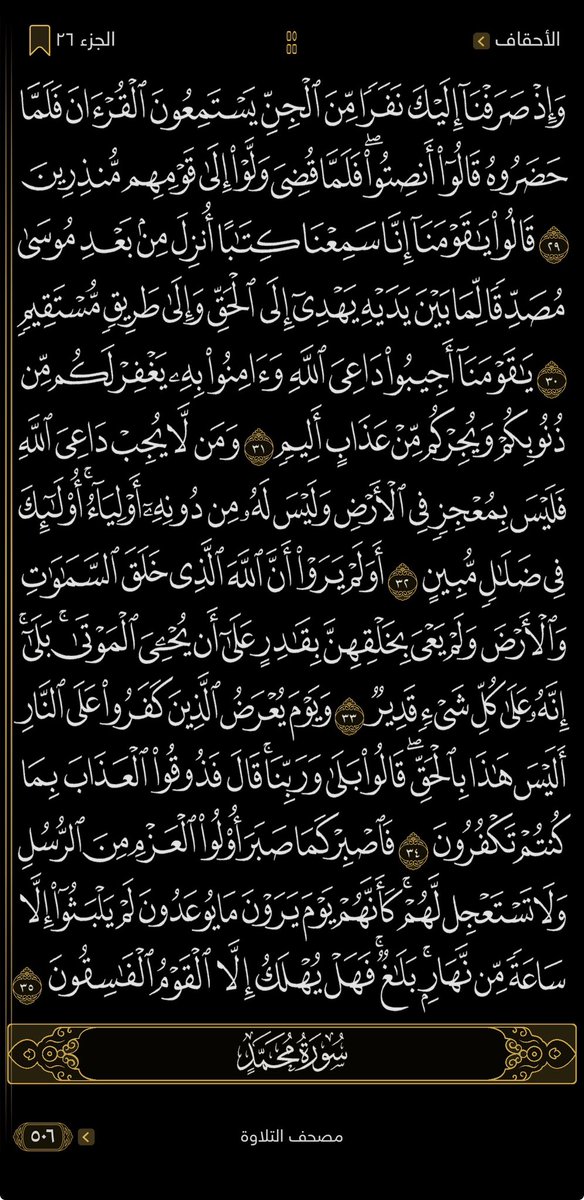 الأحقاف
الجزء ٢٦
وَإِذْ صَرَفْنَآ إِلَيْكَ نَفَرًا مِّنَ ٱلْجِنِّ يَسْتَمِعُونَ ٱلْقُرْءَانَ فَلَمَّا
حَضَرُوهُ قَالُوٓا۟ أَنصِتُوا۟ ۖ فَلَمَّا قُضِىَ وَلَّوْا۟ إِلَىٰ قَوْمِهِم مُّنذِرِينَ
٢٩ قَالُوا۟ يَـٰقَوْمَنَآ إِنَّا سَمِعْنَا كِتَـٰبًا أُنزِلَ مِنۢ بَعْدِ مُوسَىٰ
مُصَدِّقًا لِّمَا بَيْنَ يَدَيْهِ يَهْدِىٓ إِلَى ٱلْحَقِّ وَإِلَىٰ طَرِيقٍ مُّسْتَقِيمٍ
٣٠ يَـٰقَوْمَنَآ أَجِيبُوا۟ دَاعِىَ ٱللَّهِ وَءَامِنُوا۟ بِهِۦ يَغْفِرْ لَكُم مِّن
ذُنُوبِكُمْ وَيُجِرْكُم مِّنْ عَذَابٍ أَلِيمٍ ٣١ وَمَن لَّا يُجِبْ دَاعِىَ ٱللَّهِ
فَلَيْسَ بِمُعْجِزٍ فِى ٱلْأَرْضِ وَلَيْسَ لَهُۥ مِن دُونِهِۦٓ أَوْلِيَآءُ ۚ أُو۟لَـٰٓئِكَ
فِى ضَلَـٰلٍ مُّبِينٍ ٣٢ أَوَلَمْ يَرَوْا۟ أَنَّ ٱللَّهَ ٱلَّذِى خَلَقَ ٱلسَّمَـٰوَٰتِ
وَٱلْأَرْضَ وَلَمْ يَعْىَ بِخَلْقِهِنَّ بِقَـٰدِرٍ عَلَىٰٓ أَن يُحْـِۧىَ ٱلْمَوْتَىٰ ۚ بَلَىٰٓ
إِنَّهُۥ عَلَىٰ كُلِّ شَىْءٍ قَدِيرٌ ٣٣ وَيَوْمَ يُعْرَضُ ٱلَّذِينَ كَفَرُوا۟ عَلَى ٱلنَّارِ
أَلَيْسَ هَـٰذَا بِٱلْحَقِّ ۖ قَالُوا۟ بَلَىٰ وَرَبِّنَا ۚ قَالَ فَذُوقُوا۟ ٱلْعَذَابَ بِمَا
كُنتُمْ تَكْفُرُونَ ٣٤ فَٱصْبِرْ كَمَا صَبَرَ أُو۟لُوا۟ ٱلْعَزْمِ مِنَ ٱلرُّسُلِ
وَلَا تَسْتَعْجِل لَّهُمْ ۚ كَأَنَّهُمْ يَوْمَ يَرَوْنَ مَا يُوعَدُونَ لَمْ يَلْبَثُوٓا۟ إِلَّا
سَاعَةً مِّن نَّهَارٍۭ ۚ بَلَـٰغٌ ۚ فَهَلْ يُهْلَكُ إِلَّا ٱلْقَوْمُ ٱلْفَـٰسِقُونَ ٣٥
سُورَةُ مُحَمَّدٍ
مصحف التلاوة
٥٠٦